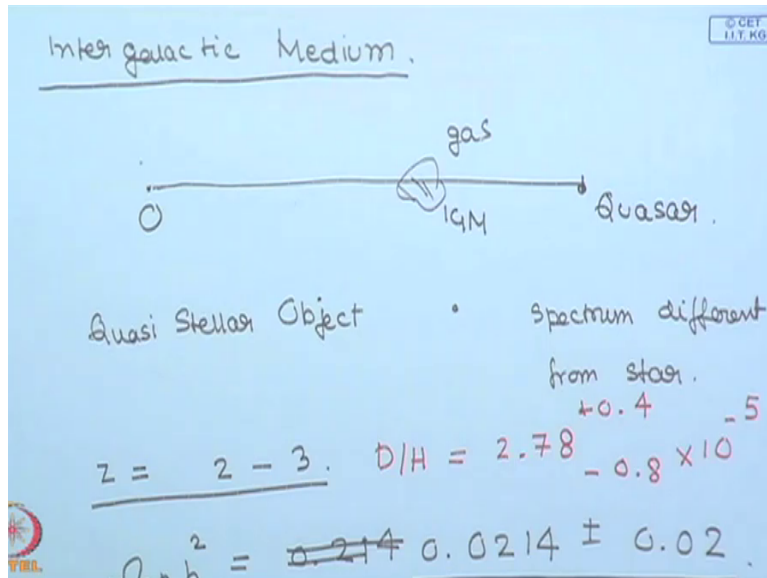 © CET
I.I.T. KG
Intergalactic Medium.
gas
O
IGM
Quasar.
Quasi Stellar Object • Spectrum different
from star.
z = 2 - 3. D/H = 2.78 +0.4 - 0.8 × 10 -5
h 2 = 0.214 0.0214 ± 0.02.